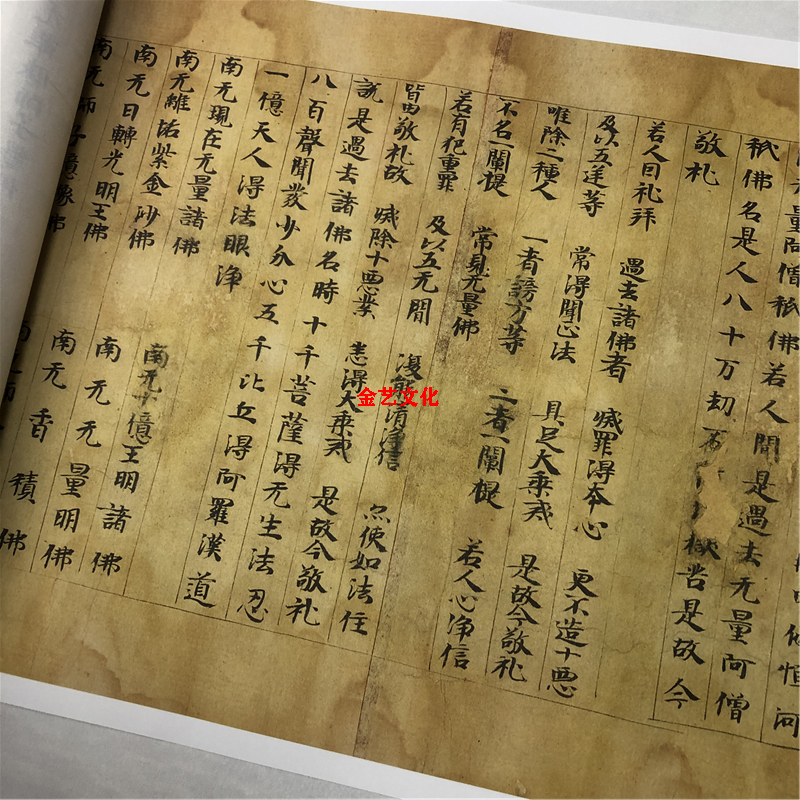 无量阿僧祇佛若人聞是過去无量阿僧
祇佛名是人八十万劫苦是故今
敬礼
若人曰礼拜 過去諸佛者 滅罪得本心 更不造十惡
及以五逆等 常得聞正法 具足大乘戒 是故今敬礼
唯除二種人 一者謗方等 二者一闡提 若人心淨信
不名一闡提 常見无量佛
若有犯重罪 及以五无間 復能清淨信 亦使如法住
皆由敬礼故 滅除十惡業 悉得大乘戒 是故今敬礼
說是過去諸佛名時十千菩薩得无生法忍
八百聲聞發少分心五千比丘得阿羅漢道
一億天人得法眼淨
南无現在无量諸佛
南无維詰紫金沙佛 南无十億王明諸佛
南无日轉光明王佛 南无无量明佛
南无師子億像佛 南无香積佛
金艺文化